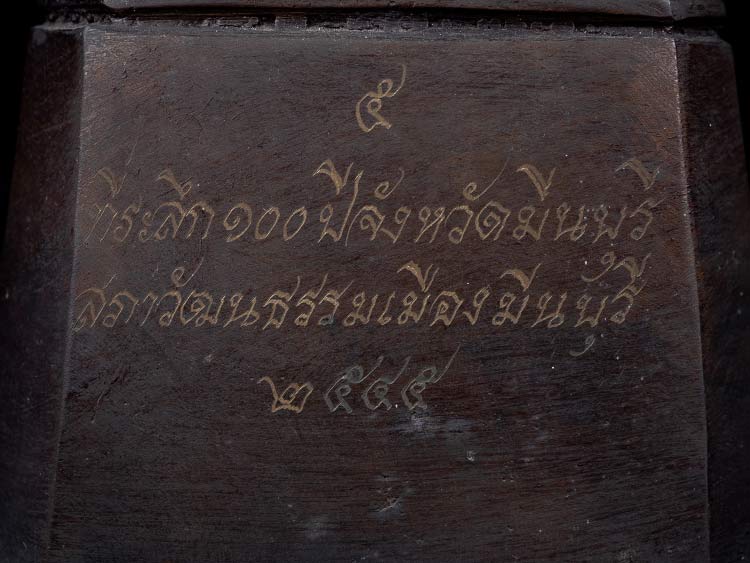 ๕
ที่ระลึก ๑๐๐ ปี จังหวัดมีนบุรี
สภาวัฒนธรรมเมืองมีนบุรี
๒๕๔๕